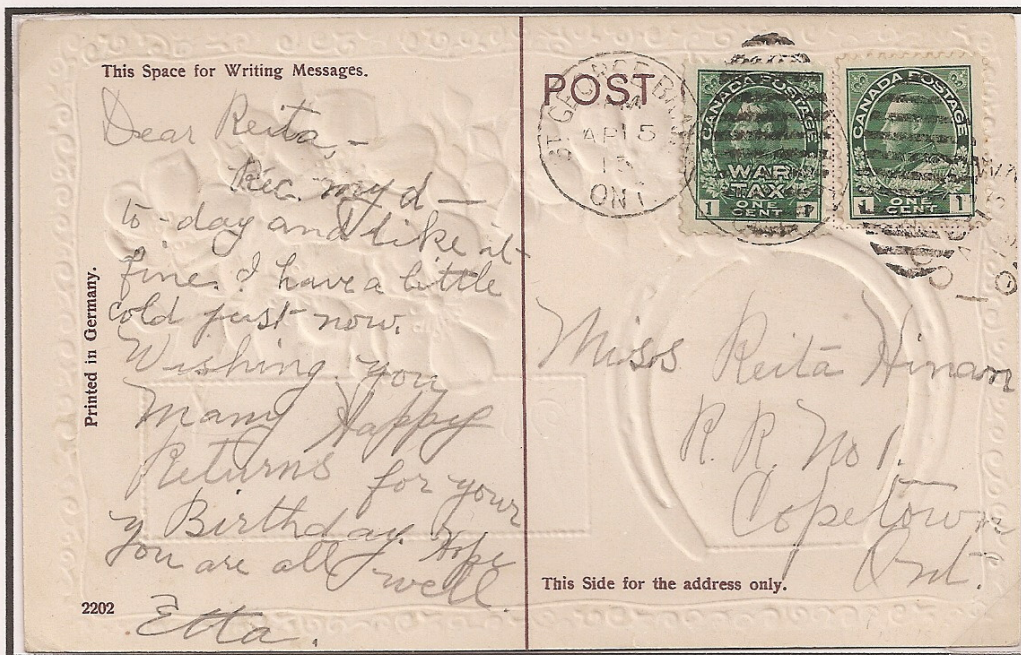 This Space for Writing Messages.
Dear Reita,-
Rec. my d —
to-day and like it
fine. I have a little
cold just now.
Wishing you
Many Happy
Returns for your
Birthday. Hope
you are all well.
Etta.
Printed in Germany.
2202
POST
ST. GEORGE BRANT
AM
AP 15
15
ONT.
CANADA POSTAGE
WAR
TAX
ONE
CENT
1 1
CANADA POSTAGE
ONE
CENT
1 1
Miss Reita Hinan
R. R. No 1.
Copetown
Ont.
This Side for the address only.